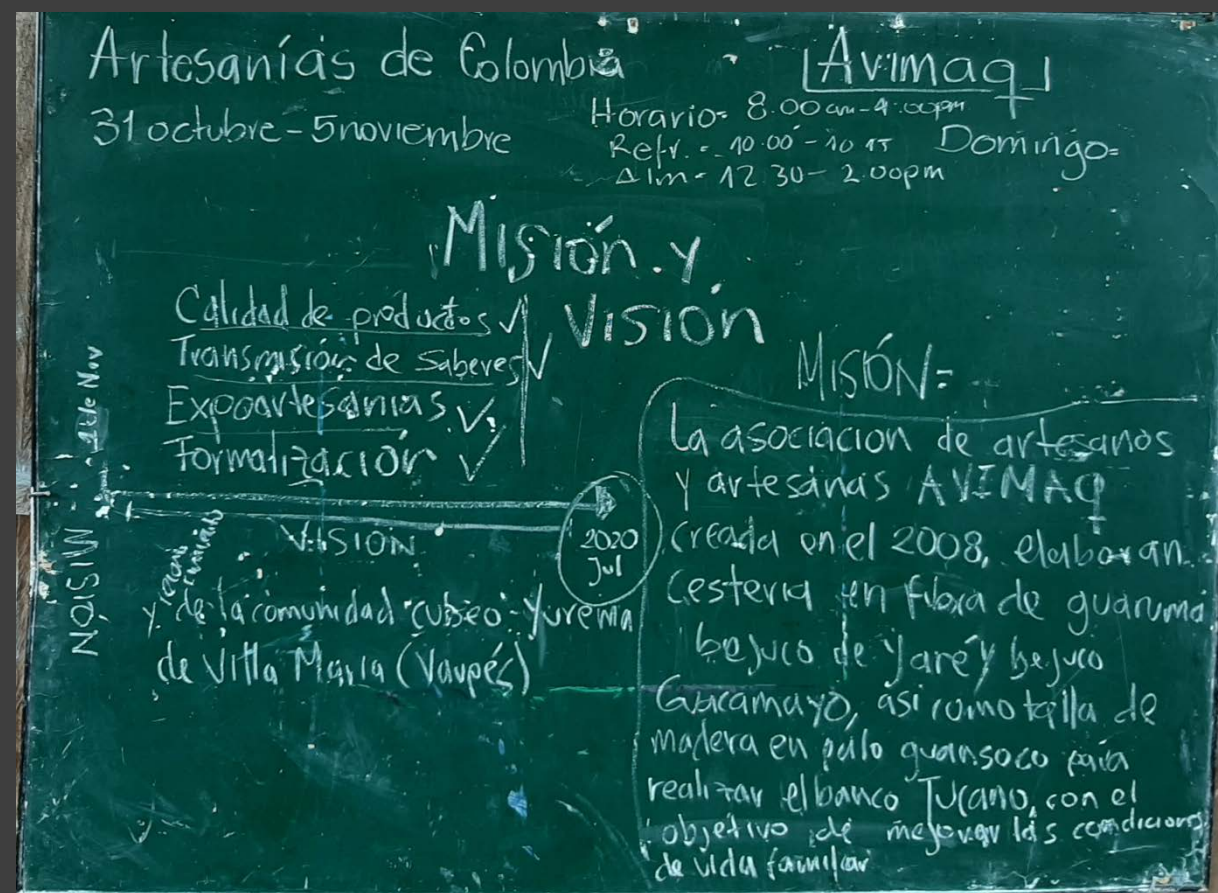 Artesanías de Colombia
Avimaq
31 octubre - 5 noviembre
Horario= 8.00 am - 4.00pm
Refr. = 10.00 - 10 15
Alm= 12.30 - 2.00pm
Domingo=
Misión y
Visión
Calidad de productos ✓
Transmisión de saberes ✓
Expoartesanías ✓
Formalización ✓
MISIÓN
1 de Nov
VISION
2020
Jul
y de la comunidad cubeo - Yurema
de Villa María (Vaupés)
MISIÓN=
La asociacion de artesanos
y artesanas AVIMAQ
creada en el 2008, elaboran
cesteria en fibra de guaruma
bejuco de Yaré y bejuco
Guacamayo, asi como talla de
madera en palo guansoco para
realizar el banco Tucano, con el
objetivo de mejorar las condiciones
de vida familiar